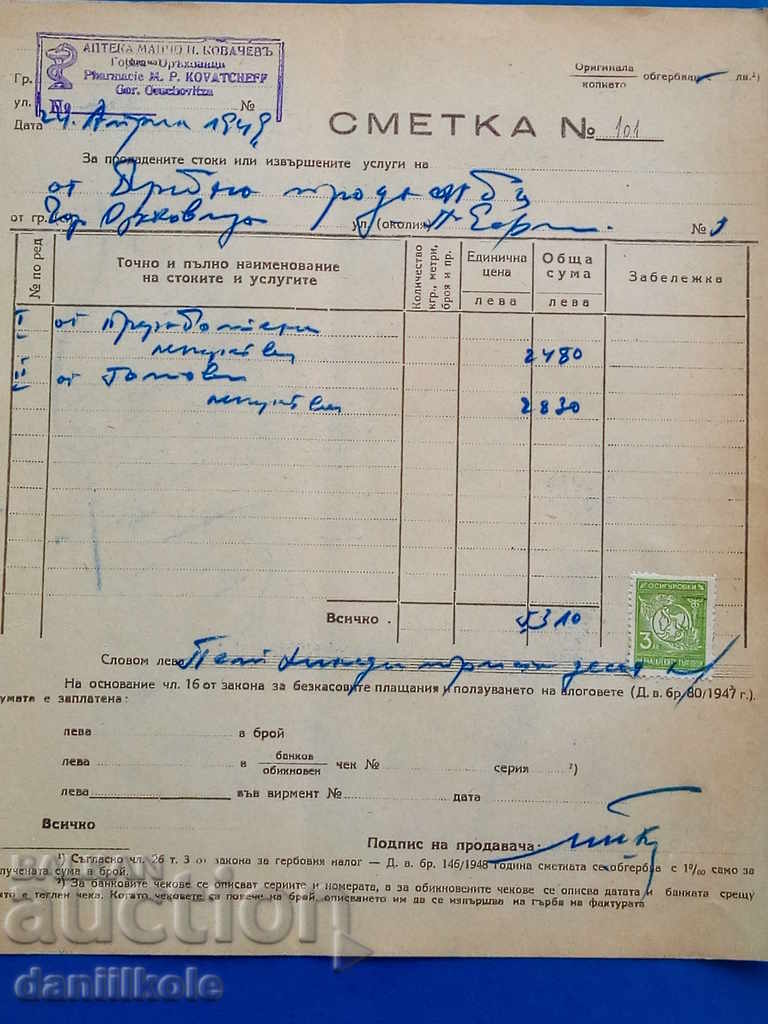 АПТЕКА МАНЧО П. КОВАЧЕВЪ
Pharmacie M. P. KOVATCHEFF
Gor. Oreschovitza
№ №
Гр.
ул.
Оригинала
копието обгербван лв.²)
Дата 24. Април 1949
СМЕТКА № 101
За продадените стоки или извършените услуги на
от
от гр. Гор Оряховица ул. (околия) №
№ по ред
Точно и пълно наименование на стоките и услугите
Количество кгр., метри, броя и пр.
Единична цена
лева
Обща сума
лева
Забележка
I от
2480
II от Готови
2830
Всичко 5310
ОСИГУРОВКИ
3
Словом лева Пет хиляди триста десет
На основание чл. 16 от закона за безкасовите плащания и ползуването на влоговете (Д. в. бр. 80/1947 г.)
сумата е заплатена:
лева в брой
лева в банков
обикновен чек № серия ²)
лева във вирмент № дата
Всичко
Подпис на продавача:
¹) Съгласно чл. 26 т. 3 от закона за гербовия налог — Д. в. бр. 146/1948 година сметката се обгербва с 1⁰/₀₀ само за
получената сума в брой.
²) За банковите чекове се описват сериите и номерата, а за обикновените чекове се описва датата и банката срещу
която е теглен чека. Когато чековете са повече на брой, описването им да се извършва на гърба на фактурата
BALKAN
auction
daniilkole